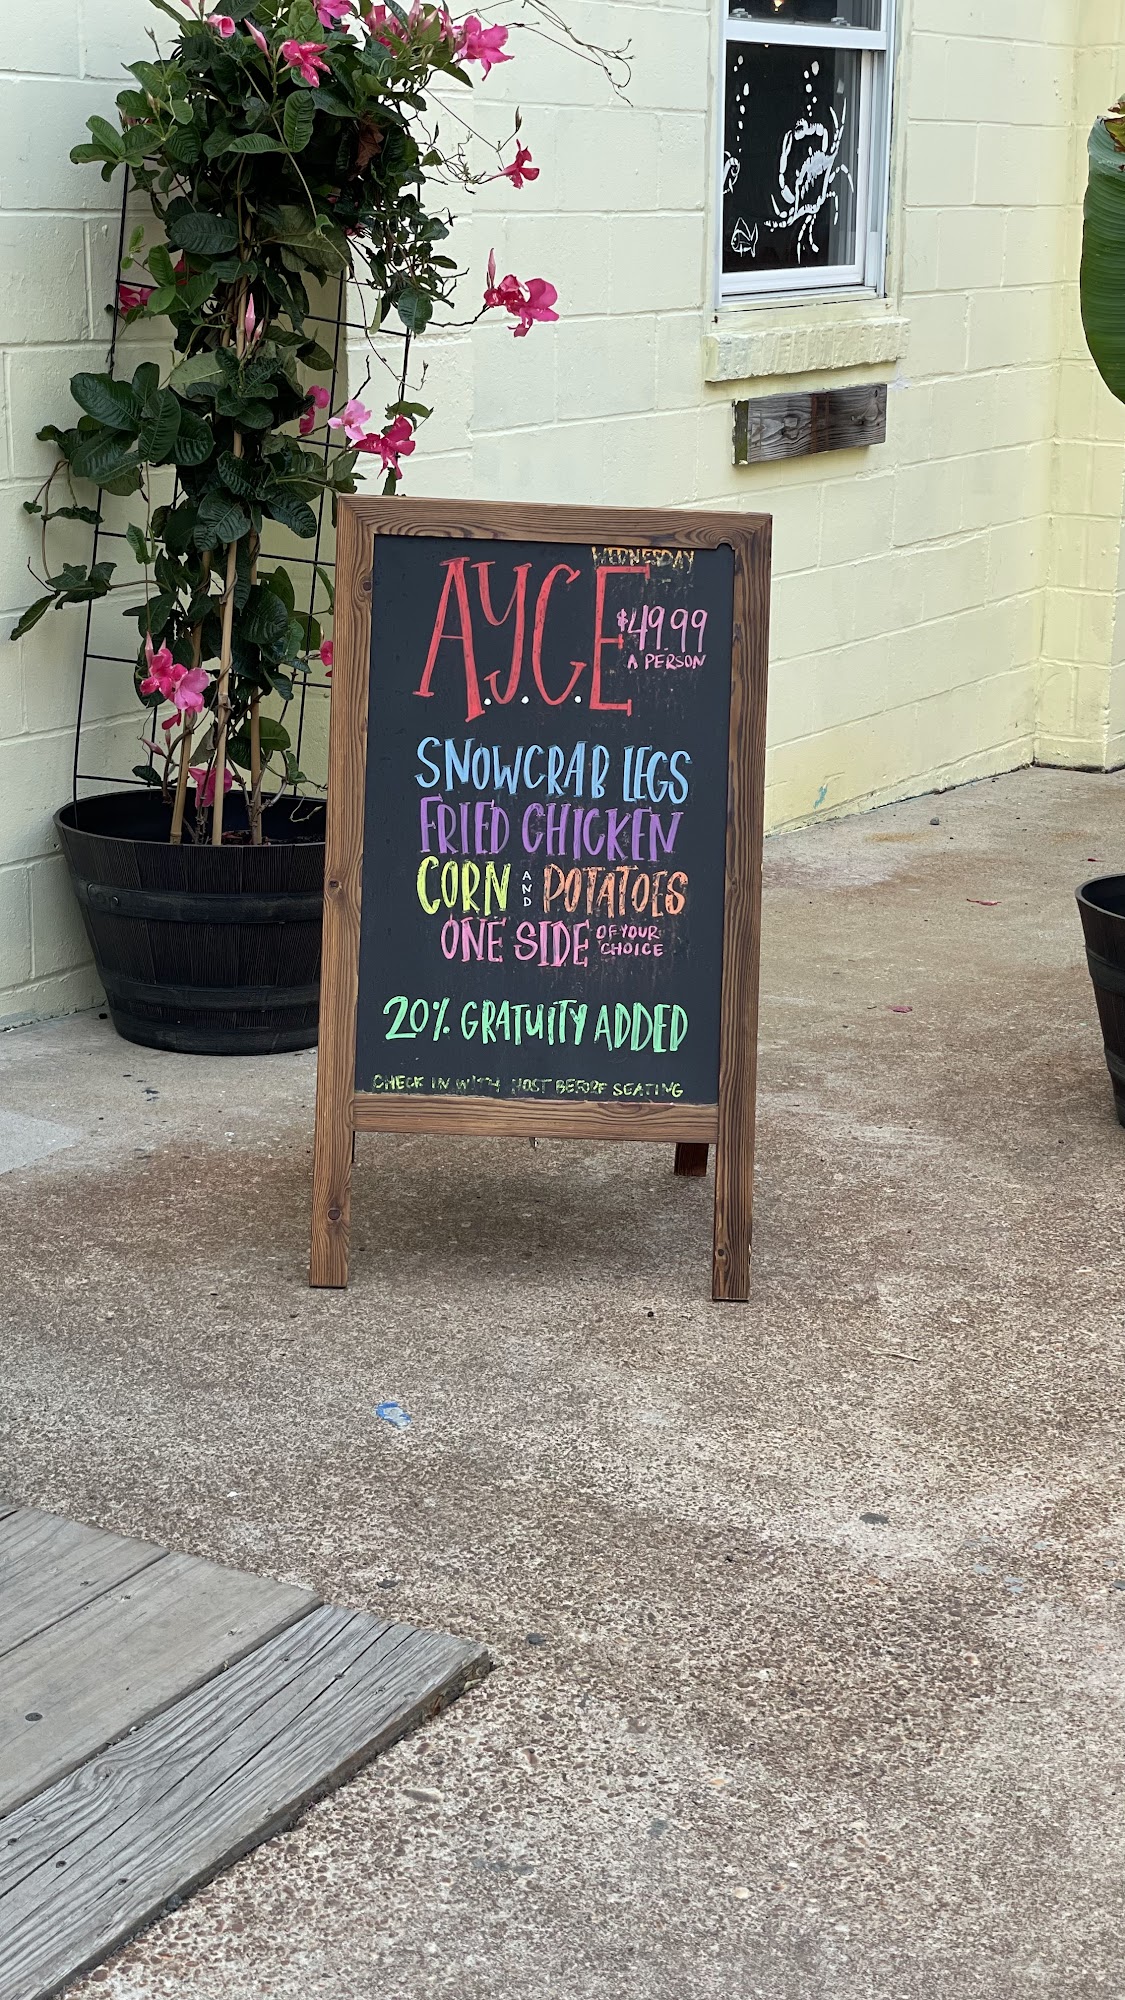 WEDNESDAY
A.Y.C.E
$49.99
A PERSON
SNOWCRAB LEGS
FRIED CHICKEN
CORN AND POTATOES
ONE SIDE OF YOUR CHOICE
20% GRATUITY ADDED
CHECK IN WITH HOST BEFORE SEATING